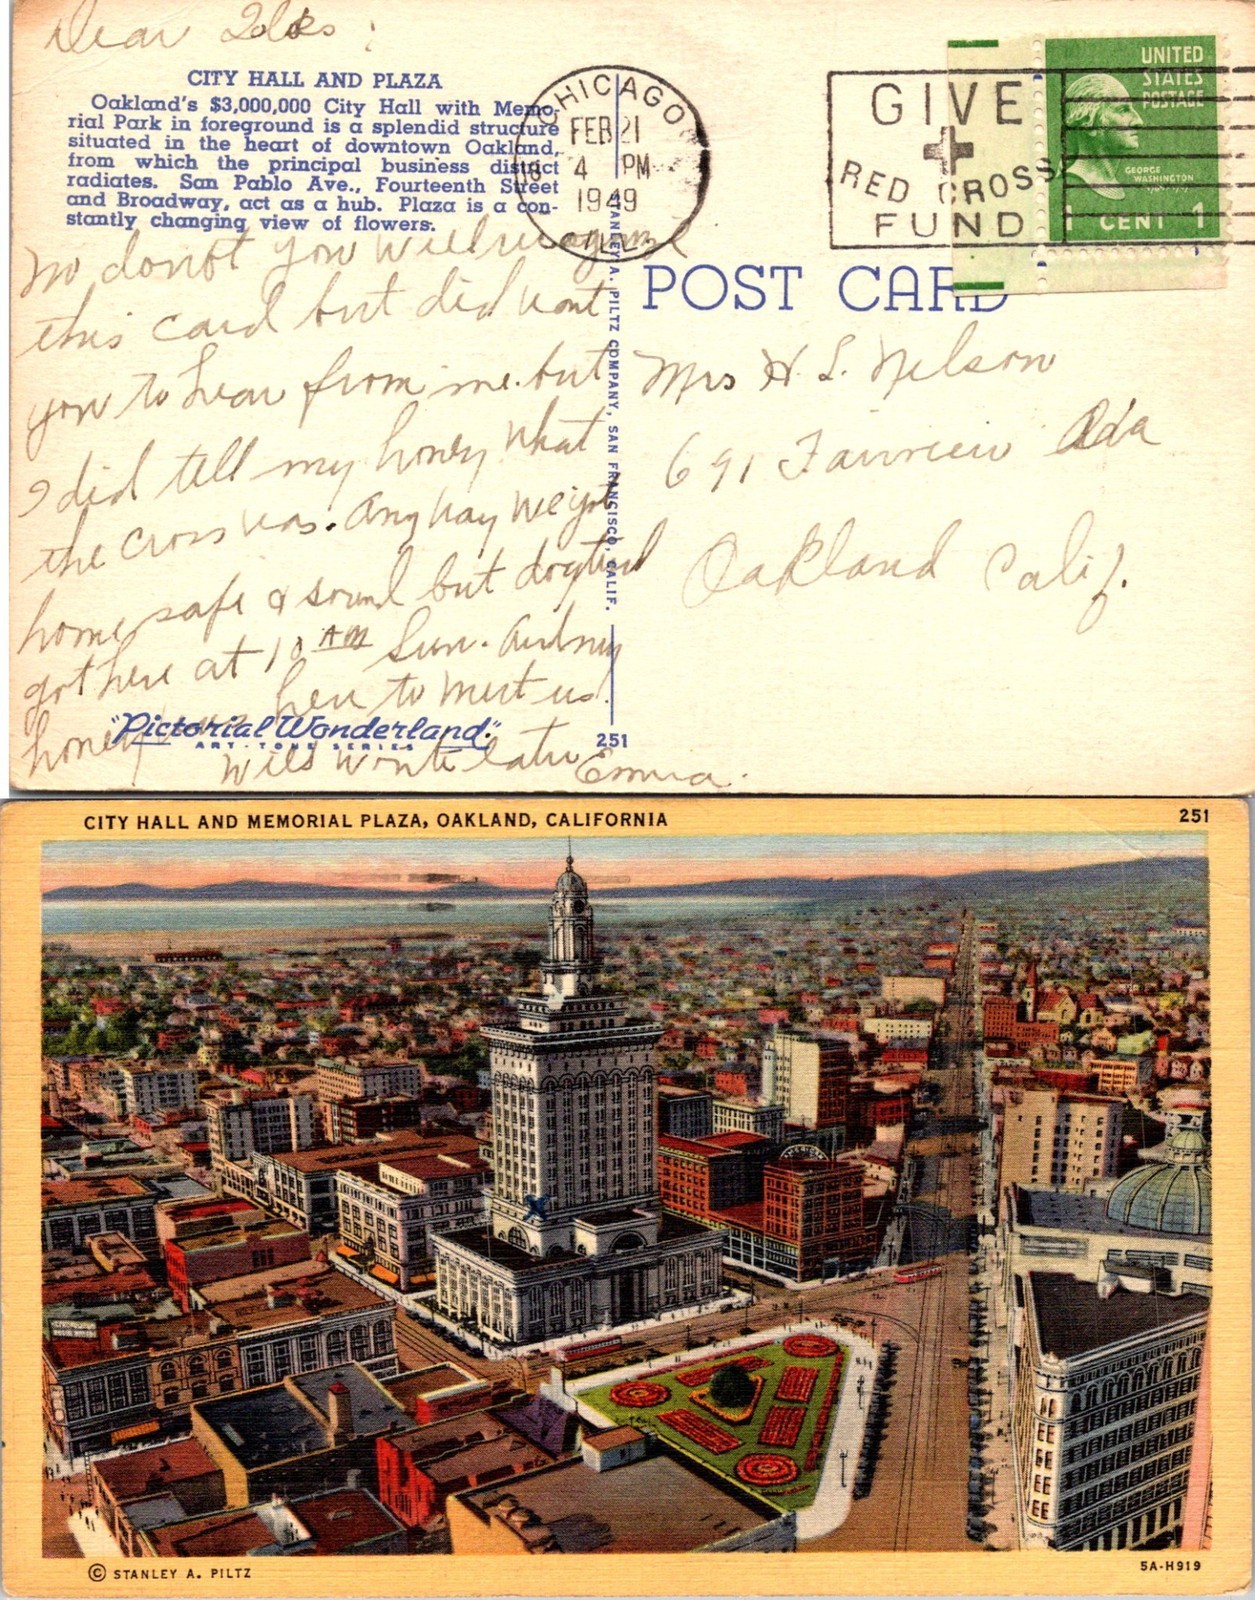 Dear Folks:
CITY HALL AND PLAZA
Oakland's $3,000,000 City Hall with Memo-
rial Park in foreground is a splendid structure
situated in the heart of downtown Oakland,
from which the principal business district
radiates. San Pablo Ave., Fourteenth Street
and Broadway, act as a hub. Plaza is a con-
stantly changing view of flowers.
CHICAGO
FEB 21
4 PM
1949
ILL.
GIVE
RED CROSS
FUND
UNITED
STATES
POSTAGE
GEORGE
WASHINGTON
1 CENT 1
POST CARD
STANLEY A. PILTZ COMPANY, SAN FRANCISCO, CALIF.
No doubt you will
this card but did want
you to hear from me. but
I did tell my honey what
the cross was. Anyway we got
home safe & sound but dogtired
got here at 10 AM Sun. Audrey
honey was here to meet us.
Will write later Emma.
Mrs H. L. Nelson
691 Fairview
Oakland Calif.
"Pictorial Wonderland"
ART-TONE SERIES
251
CITY HALL AND MEMORIAL PLAZA, OAKLAND, CALIFORNIA
251
© STANLEY A. PILTZ
5A-H919